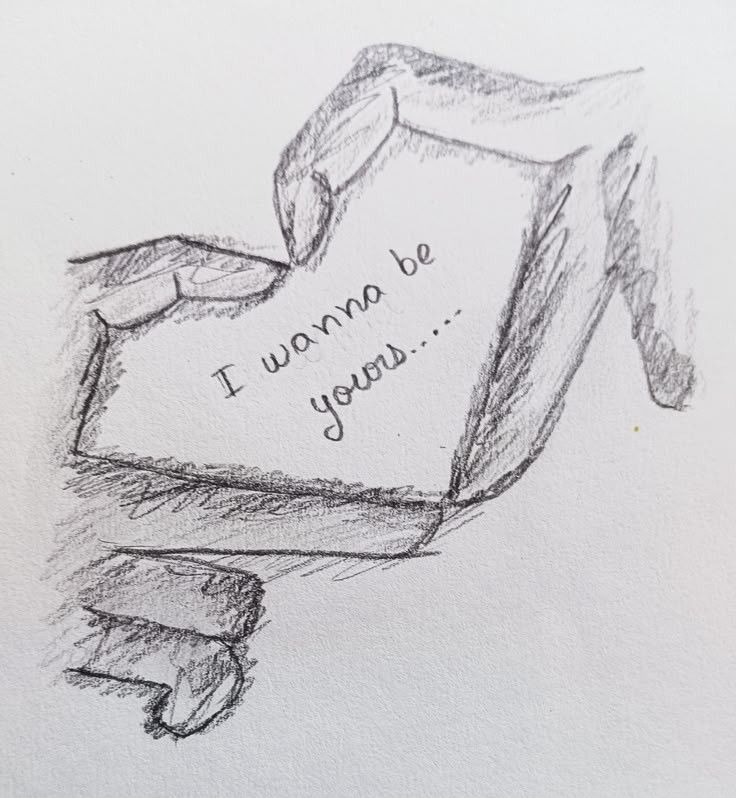 I wanna be
yours.....